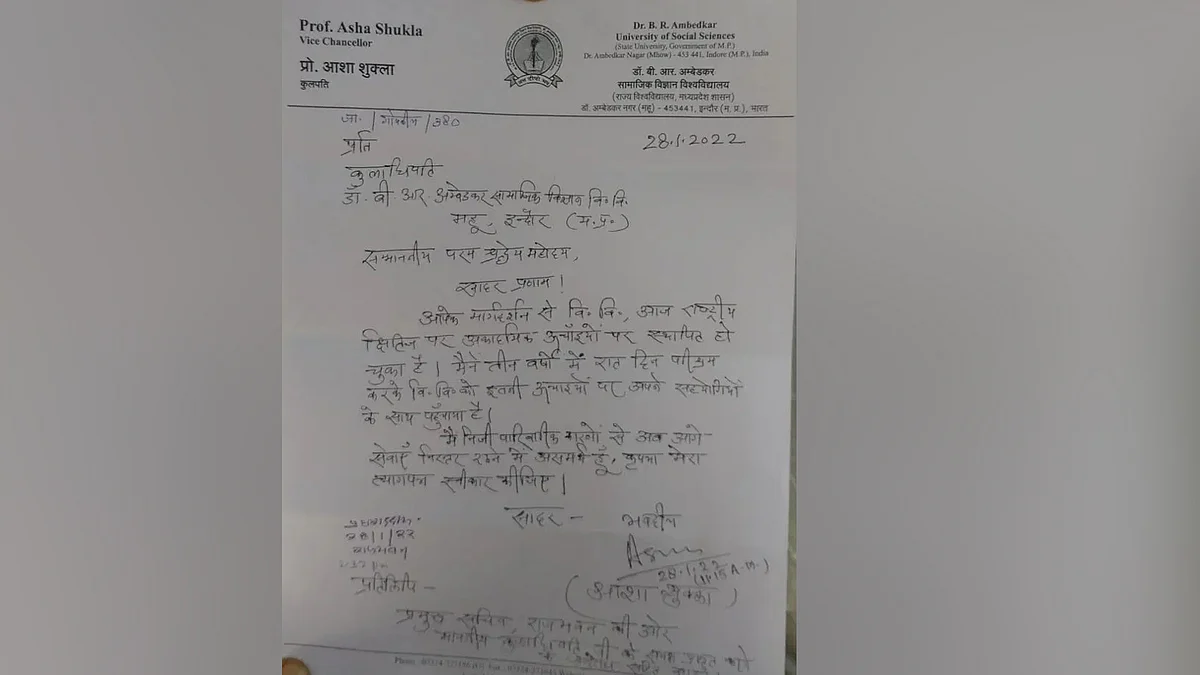 Prof. Asha Shukla
Vice Chancellor
प्रो. आशा शुक्ला
कुलपति
Dr. B. R. Ambedkar
University of Social Sciences
(State University, Government of M.P.)
Dr. Ambedkar Nagar (Mhow) - 453 441, Indore (M.P.), India
डॉ. बी. आर. अम्बेडकर
सामाजिक विज्ञान विश्वविद्यालय
(राज्य विश्वविद्यालय, मध्यप्रदेश शासन)
डॉ. अम्बेडकर नगर (महू) - 453441, इन्दौर (म. प्र.), भारत
जा. / गोपनीय / 380
28.1.2022
प्रति
कुलाधिपति
डॉ. बी. आर. अम्बेडकर सामाजिक विज्ञान वि॰ वि॰
महू, इन्दौर (म.प्र.)
सम्माननीय परम श्रद्धेय महोदय,
सादर प्रणाम !
आपके मार्गदर्शन से वि॰ वि॰, आज राष्ट्रीय
क्षितिज पर अकादमिक ऊचाँइयों पर स्थापित हो
चुका है। मैनें तीन वर्षों में रात दिन परिश्रम
करके वि॰ वि॰ को इतनी ऊचाइयों पर अपने सहयोगियों
के साथ पहुँचाया है।
मैं निजी पारिवारिक कारणों से अब आगे
सेवाएँ निरंतर रखने में असमर्थ हूँ, कृपया मेरा
त्यागपत्र स्वीकार कीजिए।
सादर -
भवदीय
28/1/22
राजभवन
28.1.22
(11.15 A.M.)
(आशा शुक्ला)
प्रतिलिपि -
प्रमुख सचिव, राजभवन की ओर
माननीय कुलाधिपति जी के समक्ष प्रस्तुत करने